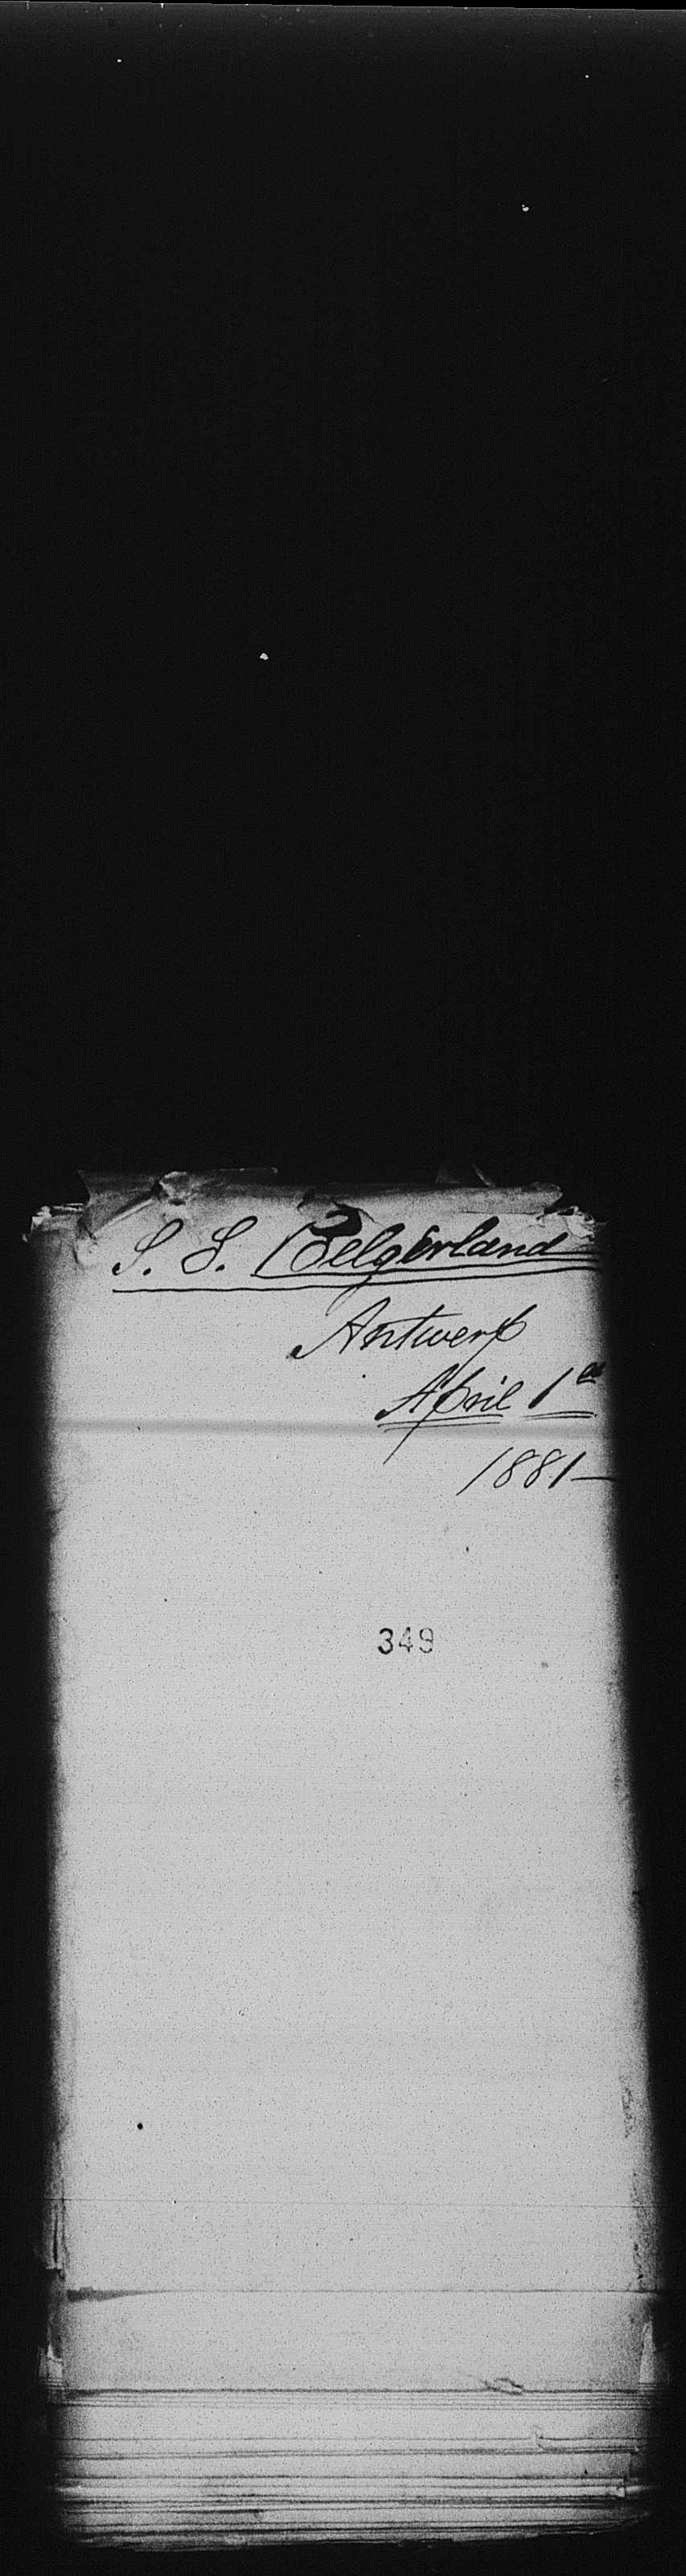 S. S. Belgenland
Antwerp
April 1st
1881—
349